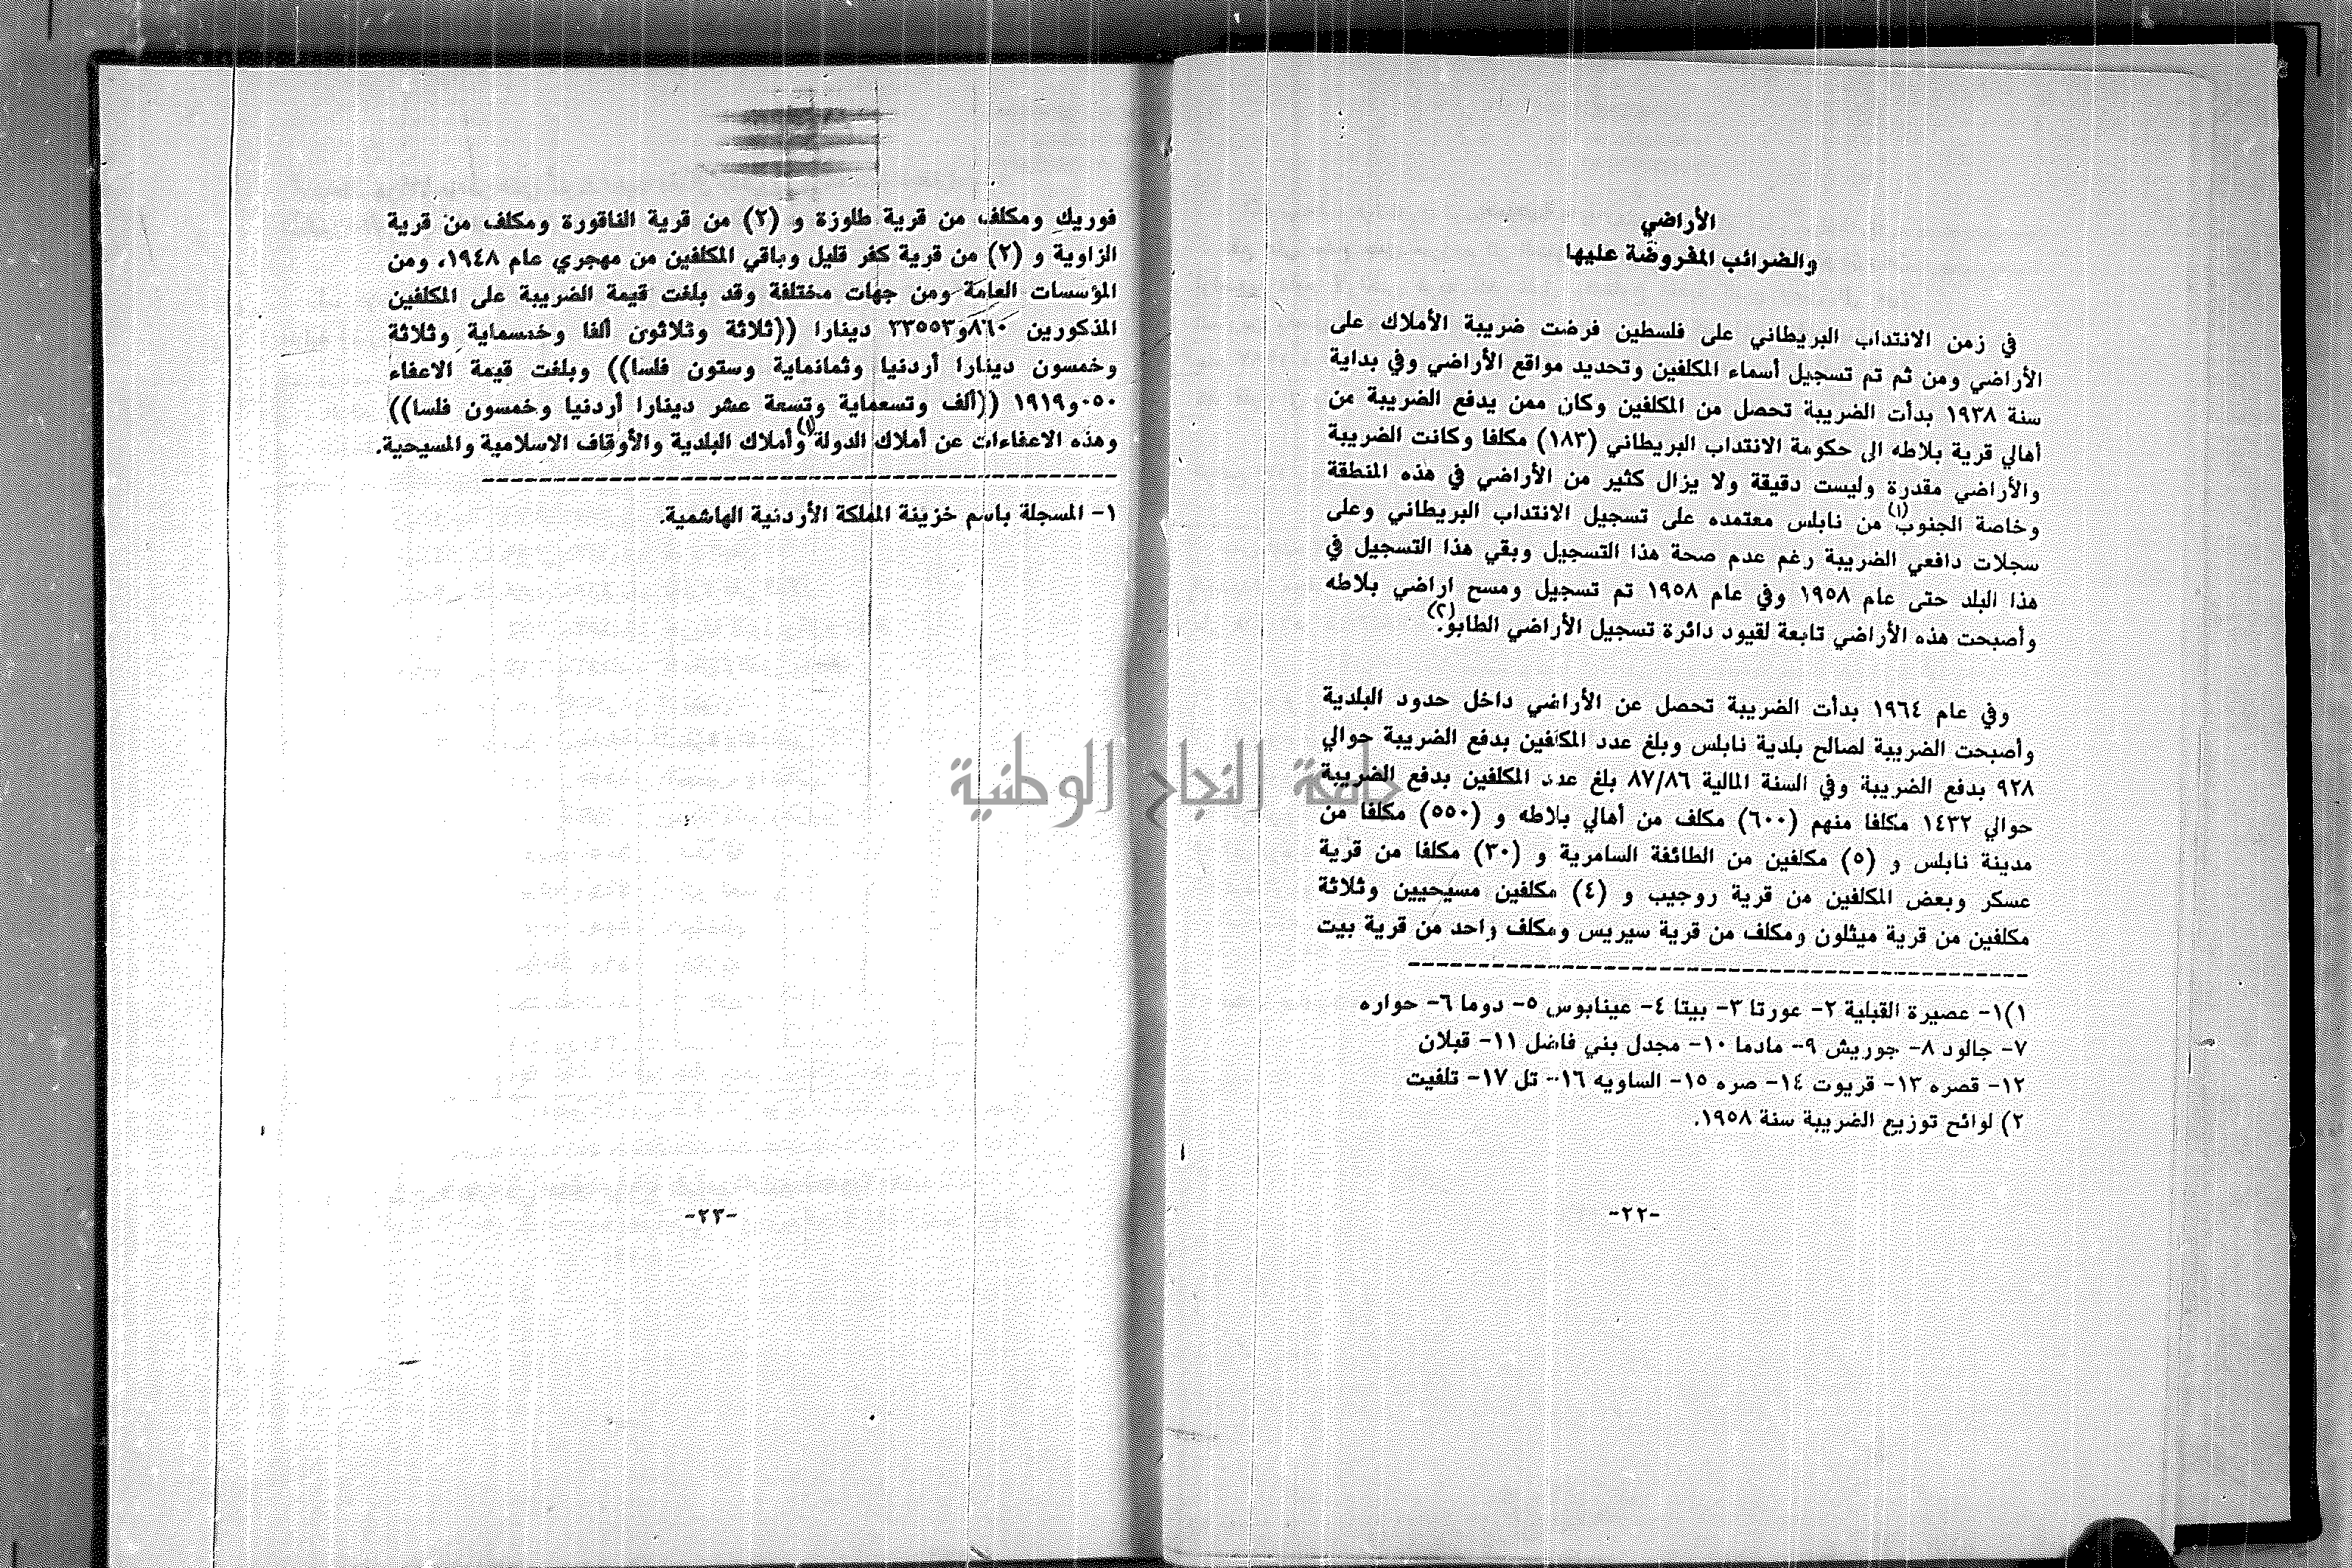 الأراضي
والضرائب المفروضة عليها
في زمن الانتداب البريطاني على فلسطين فرضت ضريبة الأملاك على
الأراضي ومن ثم تم تسجيل أسماء المكلفين وتحديد مواقع الأراضي وفي بداية
سنة ١٩٣٨ بدأت الضريبة تحصل من المكلفين وكان ممن يدفع الضريبة من
أهالي قرية بلاطه الى حكومة الانتداب البريطاني (١٨٣) مكلفا وكانت الضريبة
والأراضي مقدرة وليست دقيقة ولا يزال كثير من الأراضي في هذه المنطقة
وخاصة الجنوب(١) من نابلس معتمده على تسجيل الانتداب البريطاني وعلى
سجلات دافعي الضريبة رغم عدم صحة هذا التسجيل وبقي هذا التسجيل في
هذا البلد حتى عام ١٩٥٨ وفي عام ١٩٥٨ تم تسجيل ومسح اراضي بلاطه
وأصبحت هذه الأراضي تابعة لقيود دائرة تسجيل الأراضي الطابو.(٢)
وفي عام ١٩٦٤ بدأت الضريبة تحصل عن الأراضي داخل حدود البلدية
وأصبحت الضريبة لصالح بلدية نابلس وبلغ عدد المكلفين بدفع الضريبة حوالي
٩٢٨ بدفع الضريبة وفي السنة المالية ٨٧/٨٦ بلغ عدد المكلفين بدفع الضريبة
حوالي ١٤٣٢ مكلفا منهم (٦٠٠) مكلف من أهالي بلاطه و (٥٥٠) مكلفا من
مدينة نابلس و (٥) مكلفين من الطائفة السامرية و (٣٠) مكلفا من قرية
عسكر وبعض المكلفين من قرية روجيب و (٤) مكلفين مسيحيين وثلاثة
مكلفين من قرية ميثلون ومكلف من قرية سيريس ومكلف واحد من قرية بيت
١)١- عصيرة القبلية ٢- عورتا ٣- بيتا ٤- عينابوس ٥- دوما ٦- حواره
٧- جالود ٨- جوريش ٩- مادما ١٠- مجدل بني فاضل ١١- قبلان
١٢- قصره ١٣- قريوت ١٤- صره ١٥- الساويه ١٦- تل ١٧- تلفيت
٢) لوائح توزيع الضريبة سنة ١٩٥٨.
-٢٢-
فوريك ومكلف من قرية طلوزة و (٢) من قرية الناقورة ومكلف من قرية
الزاوية و (٢) من قرية كفر قليل وباقي المكلفين من مهجري عام ١٩٤٨، ومن
المؤسسات العامة ومن جهات مختلفة وقد بلغت قيمة الضريبة على المكلفين
المذكورين ٨٦٠و٣٣٥٥٣ دينارا ((ثلاثة وثلاثون ألفا وخمسماية وثلاثة
وخمسون دينارا أردنيا وثمانماية وستون فلسا)) وبلغت قيمة الاعفاء
٠٥٠و١٩١٩ ((ألف وتسعماية وتسعة عشر دينارا أردنيا وخمسون فلسا))
وهذه الاعفاءات عن أملاك الدولة(١) وأملاك البلدية والأوقاف الاسلامية والمسيحية.
١- المسجلة باسم خزينة المملكة الأردنية الهاشمية.
-٢٣-
جامعة النجاح الوطنية